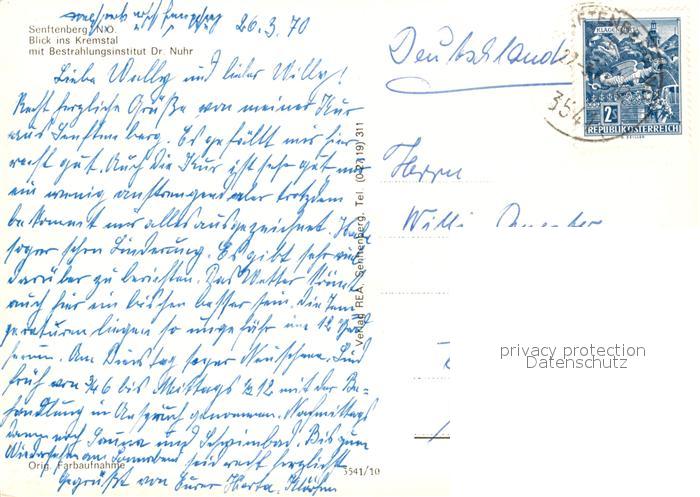 26.3.70
Senftenberg, N.Ö.
Blick ins Kremstal
mit Bestrahlungsinstitut Dr. Nuhr
Liebe Wally und lieber Willy!
Recht herzliche Grüße von meiner Kur
aus Senftenberg. Es gefällt mir hier
recht gut. Auch die Kur ist sehr gut nur
ein wenig anstrengend aber trotzdem
bekommt mir alles ausgezeichnet. Habe
sogar schon Linderung. Es gibt sehr viel
darüber zu berichten. Das Wetter könnte
auch hier ein bischen besser sein. Die Tem-
peraturen liegen so ungefähr um 12 Grad
herum. Am Dienstag sogar Neuschnee. Sind
früh von 3/4 6 bis Mittags 1/2 12 mit der Be-
handlung in Anspruch genommen. Nachmittags
dann noch Sauna und Schwimbad. Bis zum
Wiedersehen am Sonnabend seid recht herzlichst
gegrüßt von Eurer Herta
Orig. Farbaufnahme
5541/10
Verlag REA, Senftenberg, Tel. (0 27 19) 311
Deutschland
Herrn
Willi
354
KLAGENFURT
2 S
REPUBLIK ÖSTERREICH
privacy protection
Datenschutz